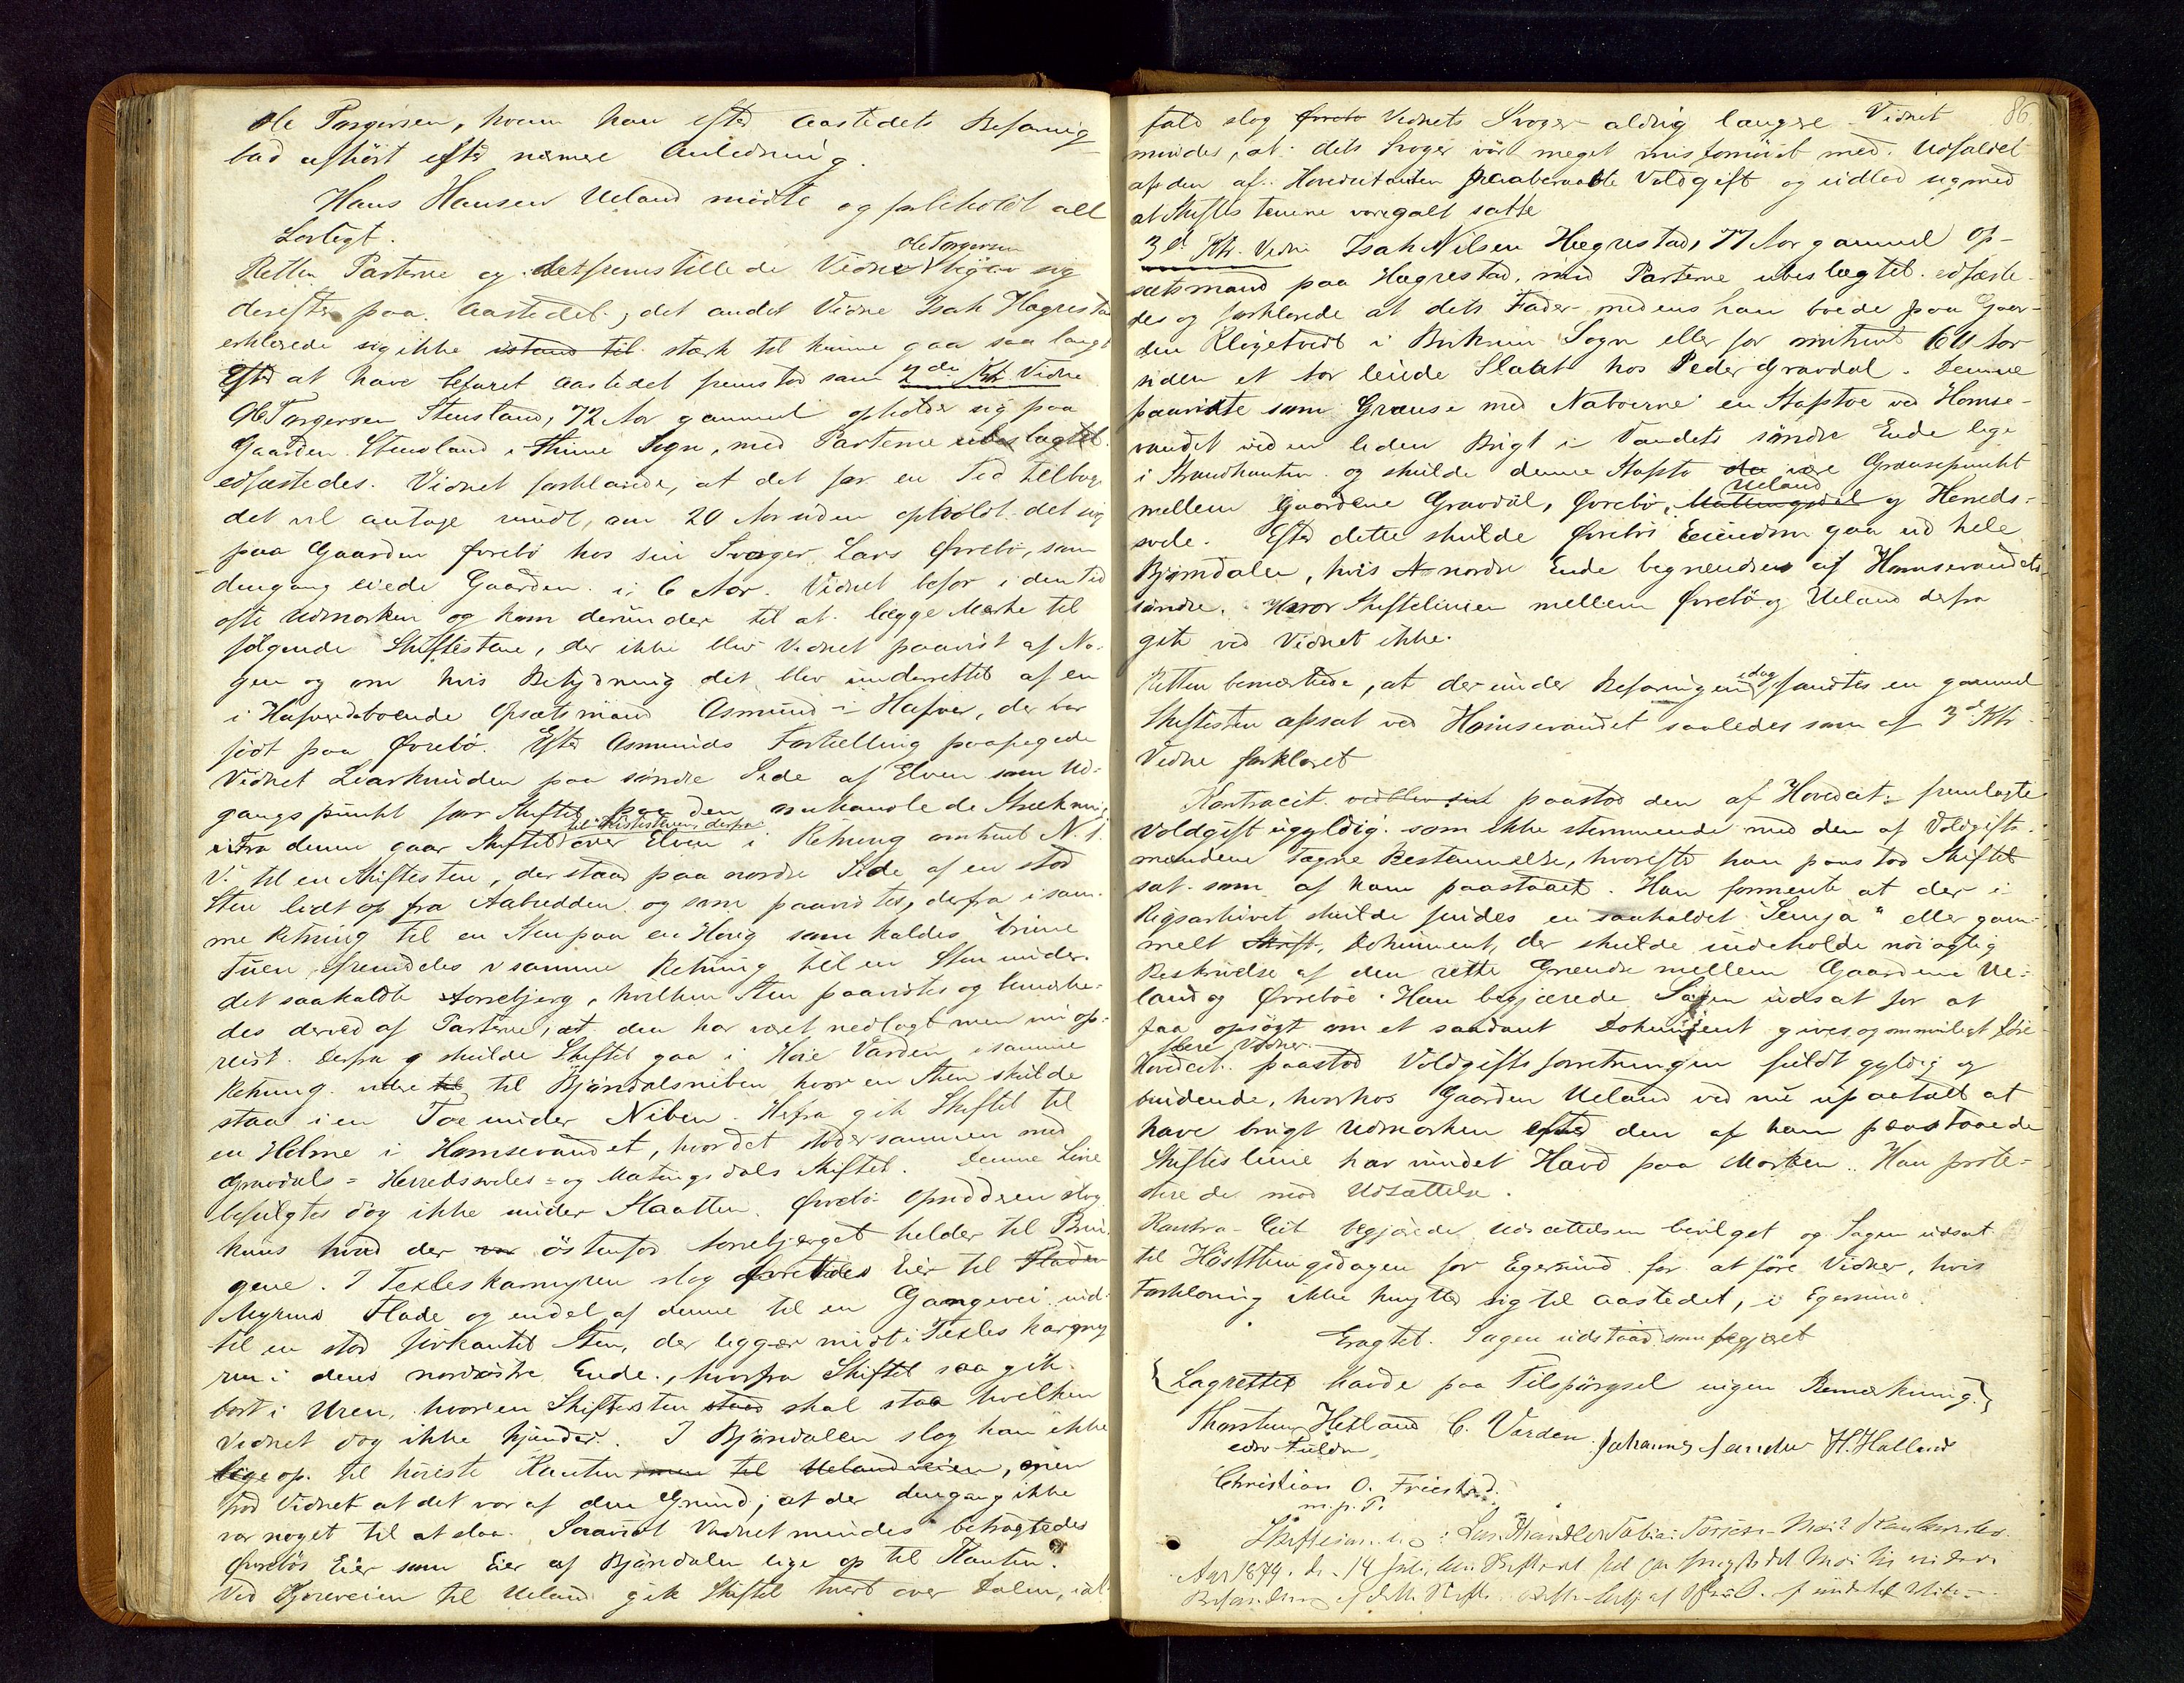 Ole Torgersen, hvem han efter Aastedets Befaring
bad afhört efter nærmere Anledning.
Hans Hansen Ueland mödte og forbeholdt alt
Lovligt.
Retten Parterne og det fremstillede Vidne Ole Torgersen begav sig
derefter paa Aastedet; det andet Vidne Isak Hægrestad
erklærede sig ikke istand til stærk til kunne gaa saa langt
Efter at have befaret Aastedet fremstod som 2det Ktr. Vidne
Ole Torgersen Stensland, 72 Aar gammel opholder sig paa
Gaarden Stensland i Hinne Sogn, med Parterne ubeslægtet
edfæstedes. Vidnet forklarede, at det for en Tid tilbage
det vil antage rundt, om 20 Aar siden opholdt det sig
paa Gaarden Övrebö hos sin Svoger Lars Övrebö, som
dengang eiede Gaarden i 6 Aar. Vidnet befor i den Tid
ofte Udmarken og kom derunder til at lægge Mærke til
fölgende Skiftestene, der ikke blev Vidnet paavist af No-
gen og om hvis Betydning det blev underrettet af en
i Hafver boende Opsætsmand Asmund i Hafver, der var
födt paa Övrebö. Efter Asmunds Fortælling paapegede
Vidnet Liarknuden paa söndre Side af Elven som Ud-
gangspunkt for Skiftet paa den omhandlede Strækning
Fra denne gaar Skiftet til Skiftesten derfra over Elven i Retning omtrent N. t.
V. til en Skiftesten, der staar paa nordre Side af en stor
Sten lidt op fra Aabredden og som paavistes, derfra i sam-
me Retning til en Sten paa en Houg som kaldes Grime
Tuen, fremdeles i samme Retning til en Sten under
det saakaldte Tonebjerg, hvilken Sten paavistes og bemærke-
des derved af Parterne, at den har været nedlagt men nu op-
reist. Derfra skulde Skiftet gaa i Höie Varden i samme
Retning videre til Bjöndalsniben hvor en Sten skulde
staa i en Toe under Niben. Herfra gik Skiftet til
en Holme i Homsevandet, hvor det stöder sammen med
Gravdals- Herredsveles- og Matingsdals Skiftet. Denne Linie
befulgtes dog ikke under Slaatten. Övrebö Opsiddere slog
kuns hvad der var östenfor Tonebjerget helder til Brin-
gene. I Texleskarmyren slog Övrebös Eier til Fladen
Myrens Flade og endel af denne til en Gangevei ind-
til en stor firkantet Sten, der ligger midt i Texleskarmy
ren i dens nordöstre Ende, hvorfra Skiftet saa gik
bort i Uren, hvor en Skiftesten staar skal staa hvilken
Vidnet dog ikke kjender. I Bjöndalen slog han ikke
lige op til höieste Kanten men til Uelandveien, men
trod Vidnet at det var af den Grund; at der dengang ikke
var noget til at slaa. Saavidt Vidnet mindes betragtedes
Övrebös Eier som Eier af Bjöndalen lige op til Kanten.
Ved Kjöreveien til Ueland gik Skiftet tvert over Dalen, ialt
86.
fald slog Övrebö Vidnets Svoger aldrig længere. Vidnet
mindes, at dets Svoger var meget misfornöiet med Udfaldet
af den af Hovedcitanten paaberaabte Voldgift og udlod sig med
at Skiftestenene vare galt satte
3de Ktr. Vidne Isak Nilsen Hægrestad, 77 Aar gammel Op-
sætsmand paa Hægrestad, med Parterne ubeslægtet edfæste-
des og forklarede at dets Fader medens han boede paa Gaar-
den Klegetvedt i Birkrem Sogn eller for omtrent 64 Aar
siden et Aar leiede Slaat hos Peder Gravdal. Denne
paaviste som Grændse med Naboerne en Stafstoe ved Homse-
vandet ved en liden Bugt i Vandets söndre Ende lige
i Strandkanten og skulde denne Stafsto da være Grændsepunkt
mellem Gaardene Gravdal, Övrebö, Ueland Mattingsdal og Herreds-
vele. Efter dette skulde Övrebös Eiendom gaa ud hele
Bjørndalen, hvis N nordre Ende begrændses af Homsevandets
söndre. Hvor Skiftelinien mellem Övrebö og Ueland derfra
gik ved Vidnet ikke.
Retten bemærkede, at der under Befaringen idag fandtes en gammel
Skiftesten afsat ved Homsevandet saaledes som af 3d Ktr.
Vidne forklaret
Kontracit. vedblev sit paastod den af Hovedcit. fremlagte
Voldgift ugyldig som ikke stemmende med den af Voldgifts-
mændene tagne Bestemmelse, hvorefter han paastod Skiftet
sat som af ham paastaaet. Han formente at der i
Rigsarkivet skulde findes en saakaldet "Semja" eller gam-
melt Skrift, Dokument, der skulde indeholde nöiagtig
Beskrivelse af den rette Grændse mellem Gaardene Ue-
land og Övreböe. Han begjærede Sagen udsat for at
faa opsögt om et saadant Dokument gives og om muligt före
flere Vidner.
Hovedcit. paastod Voldgiftsforretningen fuldt gyldig og
bindende, hvorhos Gaarden Ueland ved nu upaatalt at
have brugt Udmarken efter den af ham paastaaede
Skifteslinie har vundet Hævd paa Marken. Han prote-
sterede mod Udsættelse.
Kontra-Cit begjærede Udsættelsen bevilget og Sagen udsat
til Höstthingsdagen for Egersund for at före Vidner, hvis
Forklaring ikke knytter sig til Aastedet, i Egersund.
Eragtet. Sagen udstaar som begjæret
Lagrettet havde paa Tilspörgsel ingen Bemærkning.
Thorstein Hetland C. Varden Johannes Sander H. Halland
Christian O. Friestad.
m. p. P.
Aar 1879. d. 14 Juli